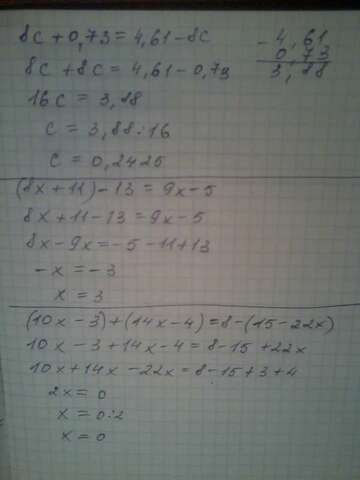 8c + 0,73 = 4,61 - 8c
- 4,61
8c + 8c = 4,61 - 0,73
0,73
16c = 3,88
3,88
c = 3,88 : 16
c = 0,2425
(8x + 11) - 13 = 9x - 5
8x + 11 - 13 = 9x - 5
8x - 9x = -5 - 11 + 13
-x = -3
x = 3
(10x - 3) + (14x - 4) = 8 - (15 - 22x)
10x - 3 + 14x - 4 = 8 - 15 + 22x
10x + 14x - 22x = 8 - 15 + 3 + 4
2x = 0
x = 0 : 2
x = 0